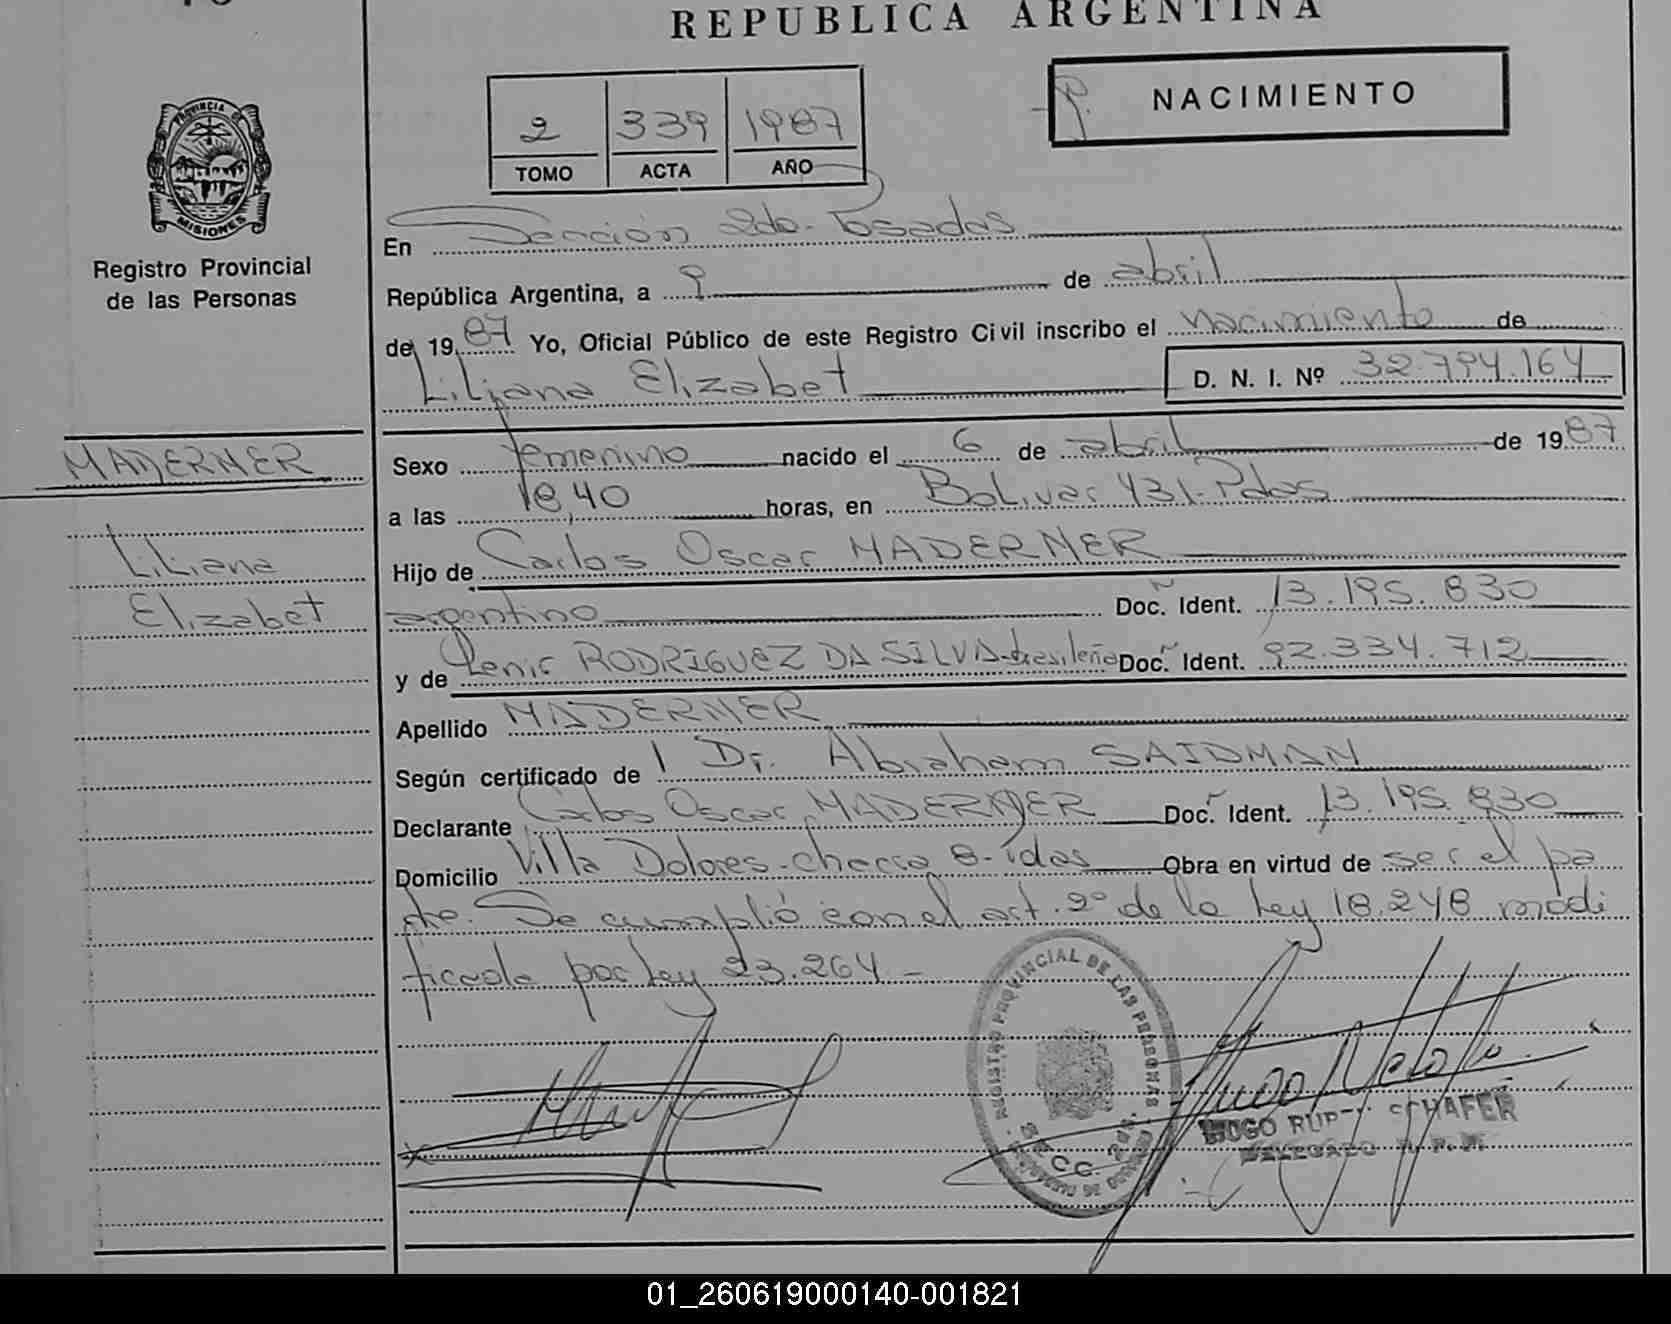 REPUBLICA ARGENTINA
NACIMIENTO
2 339 1987
TOMO ACTA AÑO
PROVINCIA DE
MISIONES
Registro Provincial
de las Personas
En Sección 2da. Posadas
República Argentina, a 9 de abril
de 1987 Yo, Oficial Público de este Registro Civil inscribo el nacimiento de
Liliana Elizabet D. N. I. Nº 32.794.164
MADERNER
Liliana
Elizabet
Sexo femenino nacido el 6 de abril de 1987
a las 18,40 horas, en Bolivar 431-Pdas
Hijo de Carlos Oscar MADERNER
argentino Doc. Ident. 13.195.830
y de RODRIGUEZ DA SILVA-brasileña Doc. Ident. 92.334.712
Apellido MADERNER
Según certificado de l Dr. Abraham SAIDMAN
Declarante Carlos Oscar MADERNER Doc. Ident. 13.195.830
Domicilio Villa Dolores-chacra 8-idas Obra en virtud de ser el pa
dre. Se cumplió con el art. 2º de la Ley 18.248 modi
ficada por Ley 23.264.-
REGISTRO PROVINCIAL DE LAS PERSONAS
SECC. 2da.
HUGO SCHAFER
DELEGADO R. P. P.
01_260619000140-001821